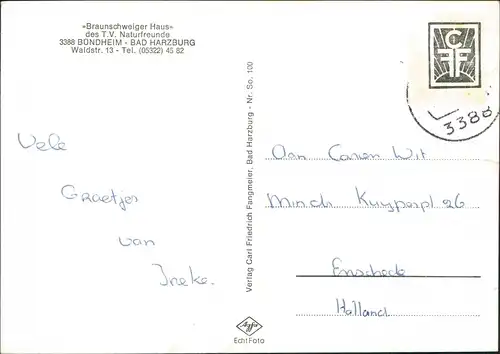 »Braunschweiger Haus«
des T.V. Naturfreunde
3388 BÜNDHEIM - BAD HARZBURG
Waldstr. 13 - Tel. (05322) 45 82
Vele
Graetjes
van
Ineke.
Verlag Carl Friedrich Fangmeier, Bad Harzburg - Nr. So. 100
CFF
3388
Aan Caren Wit
Minch Kuyperpl 26
Enschede
Holland
Agfa
Echt Foto